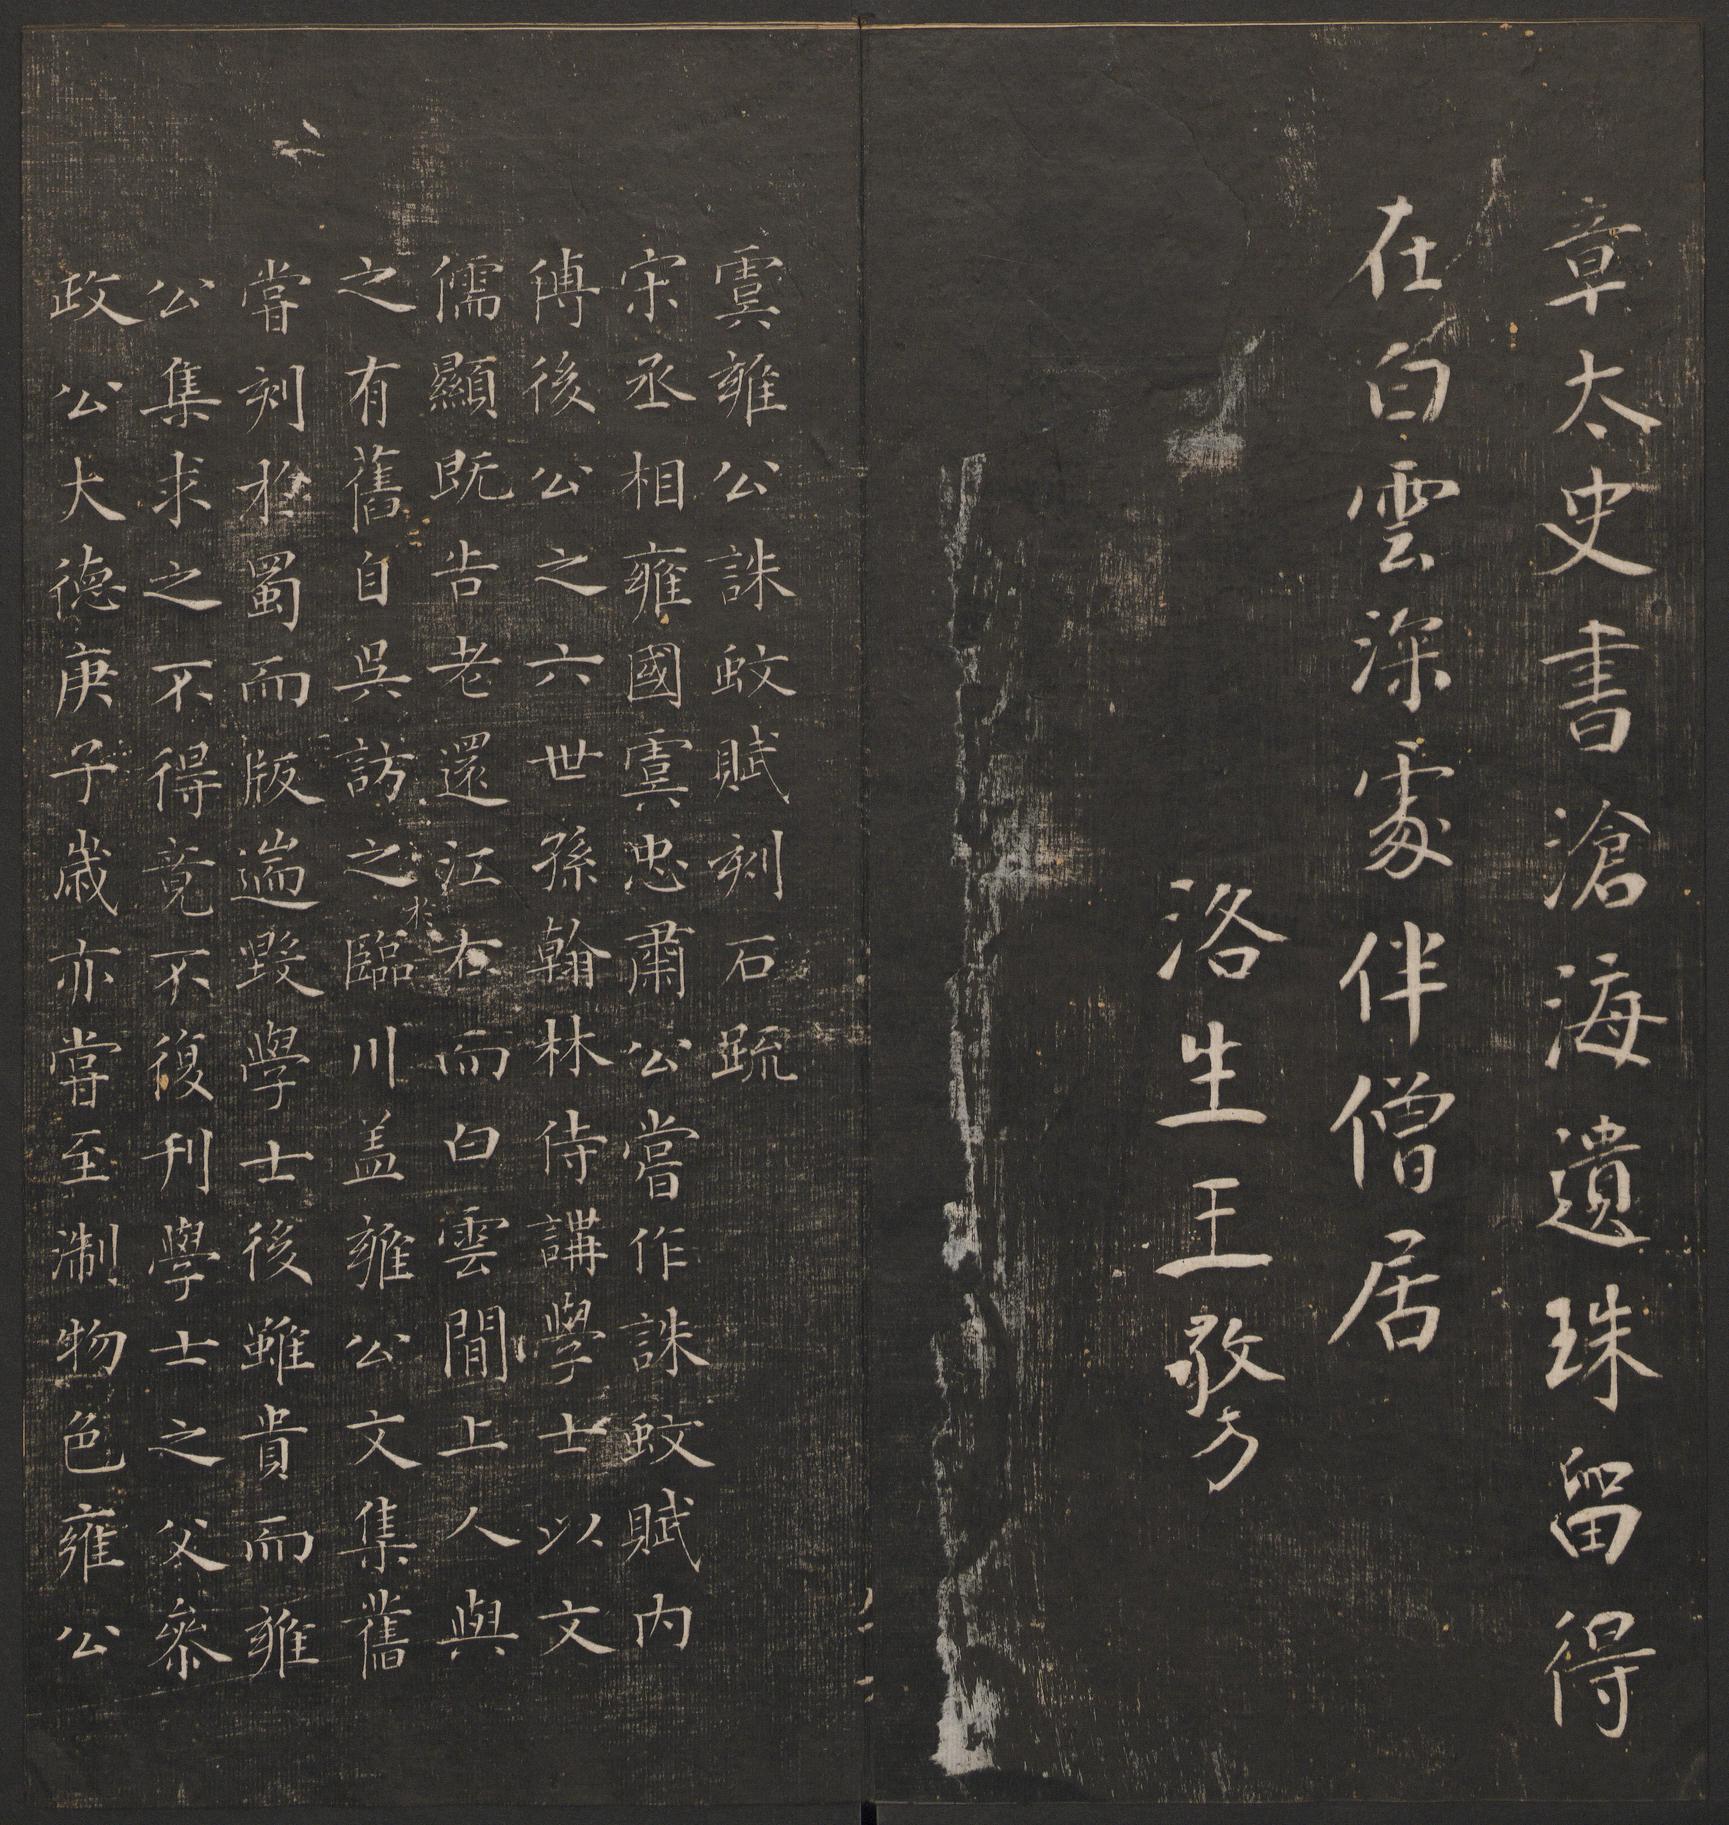 章太史書滄海遺珠留得
在白雲深處伴僧居
洛生王敄
虞雍公誅蚊賦刻石疏
宋丞相雍國虞忠肅公嘗作誅蚊賦內
傅後公之六世孫翰林侍講學士以文
儒顯既告老還江右而白雲閒上人與
之有舊自吳訪之於臨川盖雍公文集舊
嘗刻於蜀而版逬毀學士後雖貴而雍
公集求之不得竟不復刊學士之父叅
政公大德庚子歲亦嘗至淛物色雍公